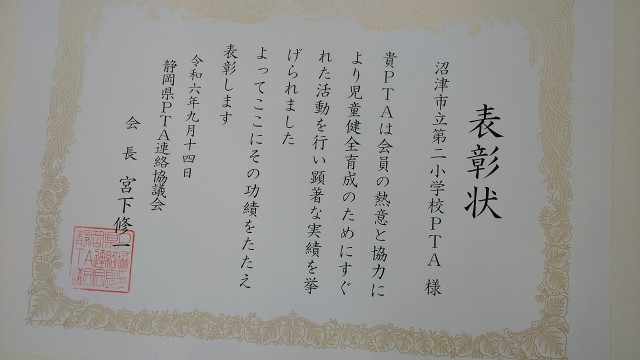 表彰状
沼津市立第二小学校PTA 様
貴PTAは会員の熱意と協力に
より児童健全育成のためにすぐ
れた活動を行い顕著な実績を挙
げられました
よってここにその功績をたたえ
表彰します
令和六年九月十四日
静岡県PTA連絡協議会
会長 宮下修一